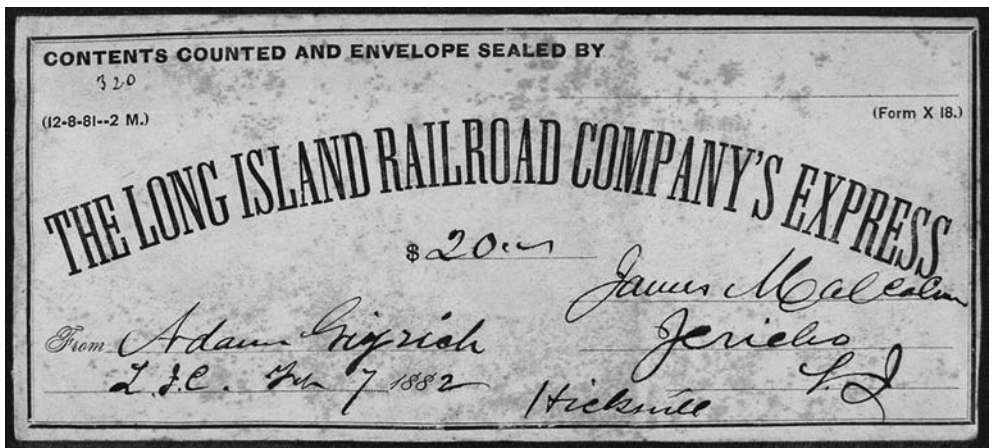 CONTENTS COUNTED AND ENVELOPE SEALED BY
320
(12-8-81--2 M.)
(Form X 18.)
THE LONG ISLAND RAILROAD COMPANY'S EXPRESS
$ 20
James Malcolm
From Adam
Jericho
L.I.C. Feb 7 1882
L I
Hicksville